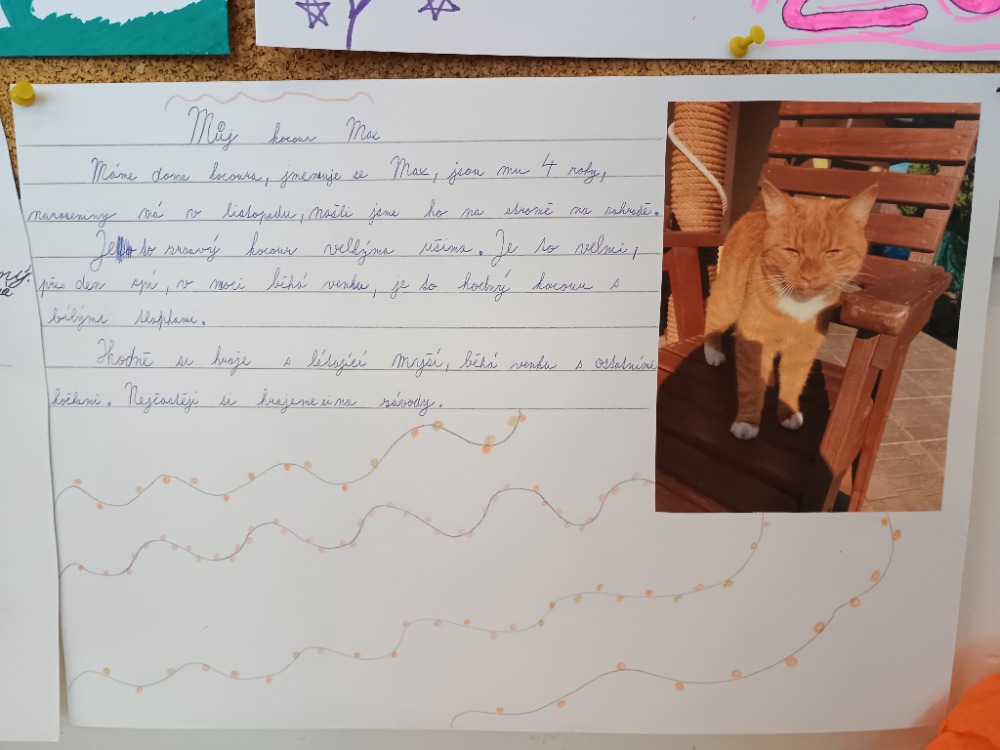 Můj kocour Max
Máme doma kocoura, jmenuje se Max, jsou mu 4 roky,
narozeniny má v listopadu, našli jsme ho na stromě na zahradě.
Je to zrzavý kocour velkýma ušima. Je to velmi,
přes den spí, v noci běhá venku, je to hodný kocour s
bílýme tlapkami.
Hodně si hraje s létající myší, běhá venku s ostatníme
kočkami. Nejčastěji si hrajeme si na závody.